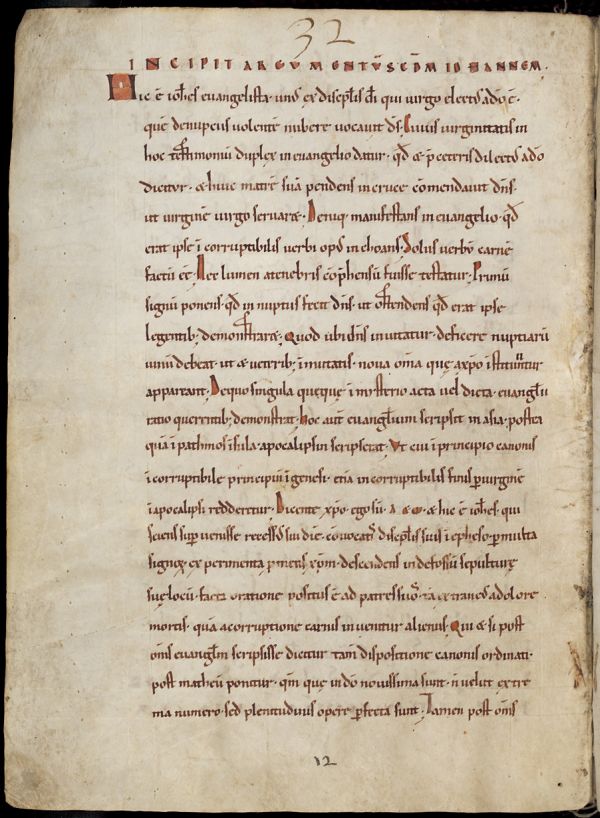 32
INCIPIT ARGUMENTŪ SCDM IOHANNEM.
Hic ē ioh̄es evangelista · unus ex discip̄lis dī qui virgo electus adō ē ·
quē denuptiis volentē nubere vocavit ds̄ · Cuius virginitatis in
hoc testimoniū duplex in evangelio datur · qd̄ & p̄ ceteris dilectus adō
dicitur · & huic matrē suā pendens in cruce comendavit dn̄s ·
ut virginē virgo servar& · Deniq; manifestans in evangelio · qd̄
erat ipse ī corruptibilis verbi opus inchoans · Solus verbū carnē
factū ēē · Nec lumen atenebris cōp̄hensū fuisse testatur · Primū
signū ponens · qd̄ in nuptiis fecit dn̄s · ut ostendens qd̄ erat ipse
legentib; demonstrar& · Quod ubi dn̄s invitatur · deficere nuptiarū
vinū debeat · ut & veterib; īmutatis · nova om̄a quę axp̄o īstituuntur
appareant · De quo singula quęquę ī mysterio acta vel dicta · evangl̄ii
ratio querentib; demonstrat · hoc aut̄ evangl̄ium scripsit in asia · postea
quā ī pathmos īsula · apocalipsin scripserat · Ut cui ī principio canonis
ī corruptibile principiū ī genesi · etiā incorruptibilis finis p̱ virginē
ī apocalipsi redderetur · Dicente xp̄o · ego sū · Α & ω · & hic ē ioh̄es · qui
sciens sup̱venisse recessus sui diē · cōvocatis discip̄lis suis ī epheso · p̱ multa
signoꝝ exp̱erimenta p̱mens xp̄m · descendens in defossū sepulturę
suę locū · facta oratione positus ē ad patres suos · tā extraneus adolore
mortis · quā acorruptione carnis invenitur alienus · Qui & si post
om̄s evangl̄m scripsisse dicitur tam̄ dispositione canonis ordinati ·
post matheū ponitur · qm̄ quę in dn̄o novissima sunt · n̄ velut extre
ma numero · sed plenitudinis opere p̱fecta sunt · Tamen post om̄s
12